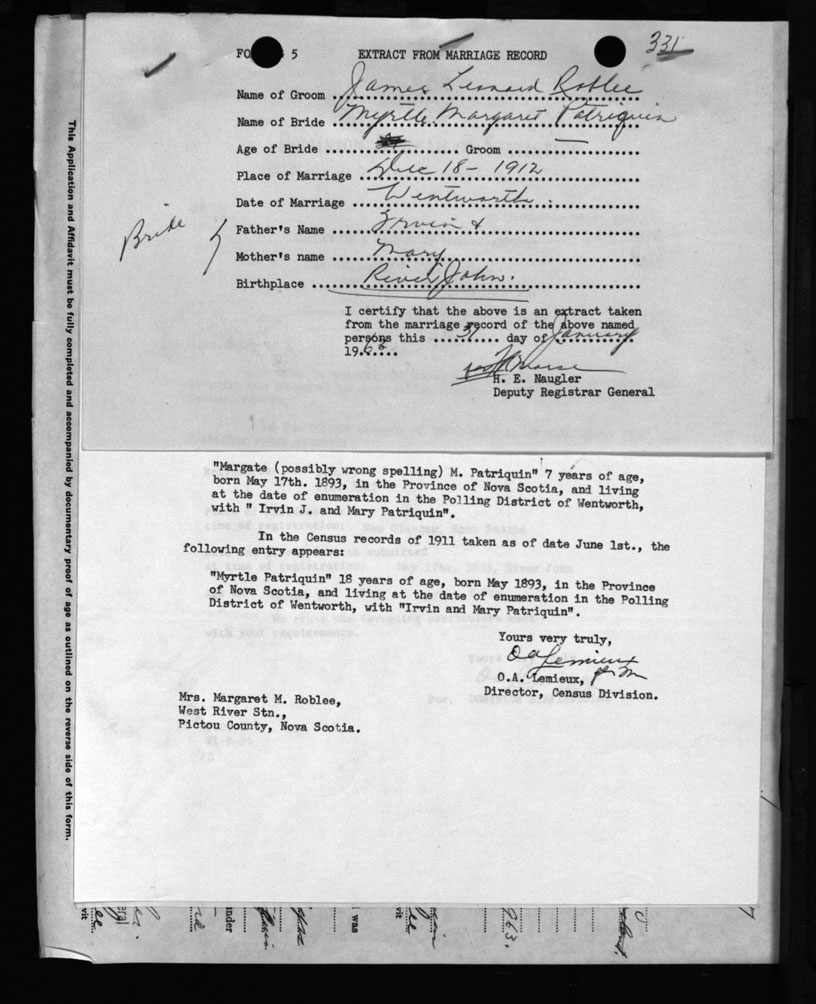 331
FO 5 EXTRACT FROM MARRIAGE RECORD
Name of Groom James Leonard Roblee
Name of Bride Myrtle Margaret Patriquin
Age of Bride .................. Groom ..................
Place of Marriage Dec 18 - 1912
Date of Marriage Wentworth
Bride
Father's Name Irvin &
Mother's name Mary
Birthplace River John.
I certify that the above is an extract taken
from the marriage record of the above named
persons this 31 day of January
1963
H. E. Naugler
Deputy Registrar General
This Application and Affidavit must be fully completed and accompanied by documentary proof of age as outlined on the reverse side of this form.
"Margate (possibly wrong spelling) M. Patriquin" 7 years of age,
born May 17th. 1893, in the Province of Nova Scotia, and living
at the date of enumeration in the Polling District of Wentworth,
with " Irvin J. and Mary Patriquin".
In the Census records of 1911 taken as of date June 1st., the
following entry appears:
"Myrtle Patriquin" 18 years of age, born May 1893, in the Province
of Nova Scotia, and living at the date of enumeration in the Polling
District of Wentworth, with "Irvin and Mary Patriquin".
Yours very truly,
O A Lemieux
O.A. Lemieux,
Director, Census Division.
Mrs. Margaret M. Roblee,
West River Stn.,
Pictou County, Nova Scotia.
under
I was
vit
963.